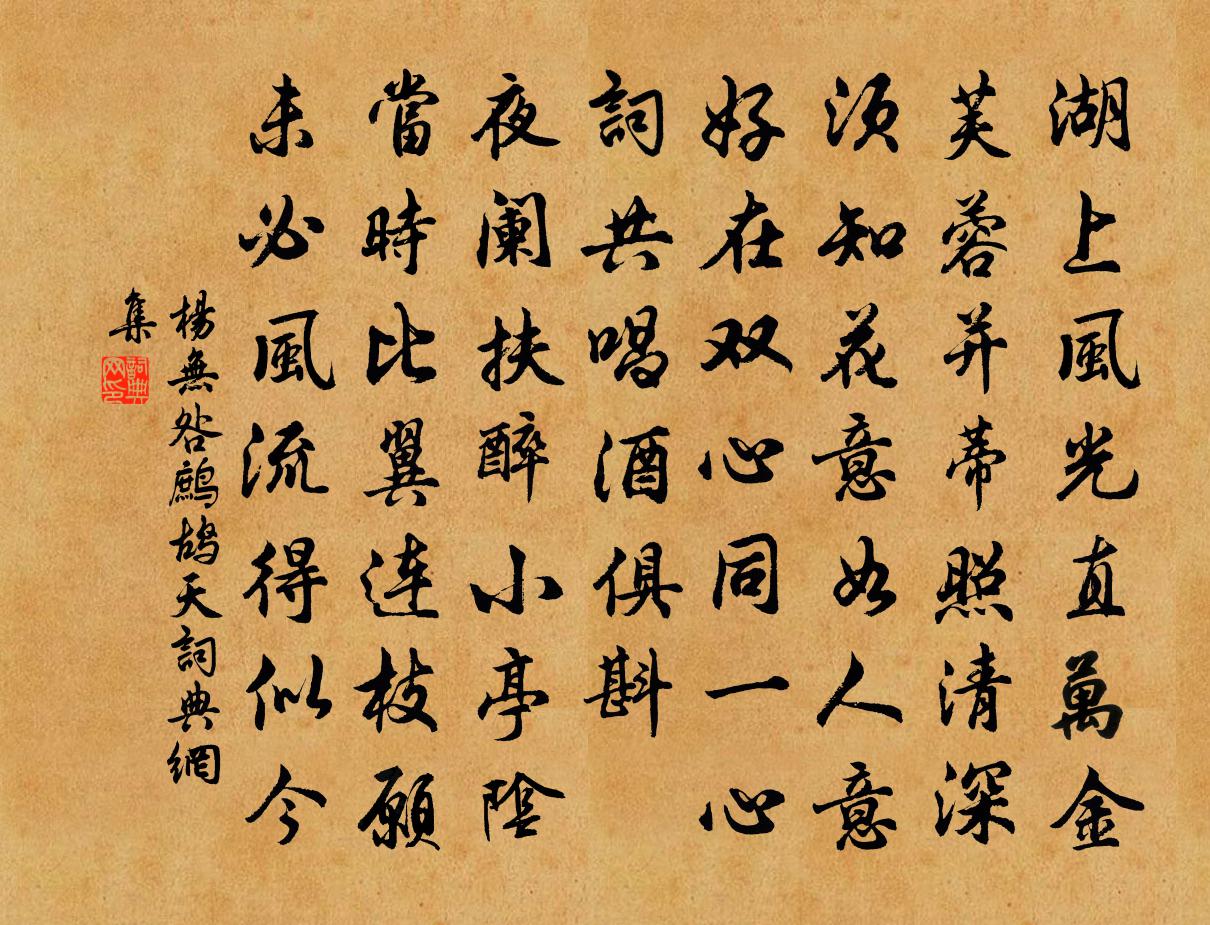 湖上風光直萬金
芙蓉并蒂照清深
須知花意如人意
好在双心同一心
詞共唱酒俱斟
夜阑扶醉小亭陰
當時比翼連枝願
未必風流得似今
楊無咎鷓鴣天詞典網
集
詞典网印